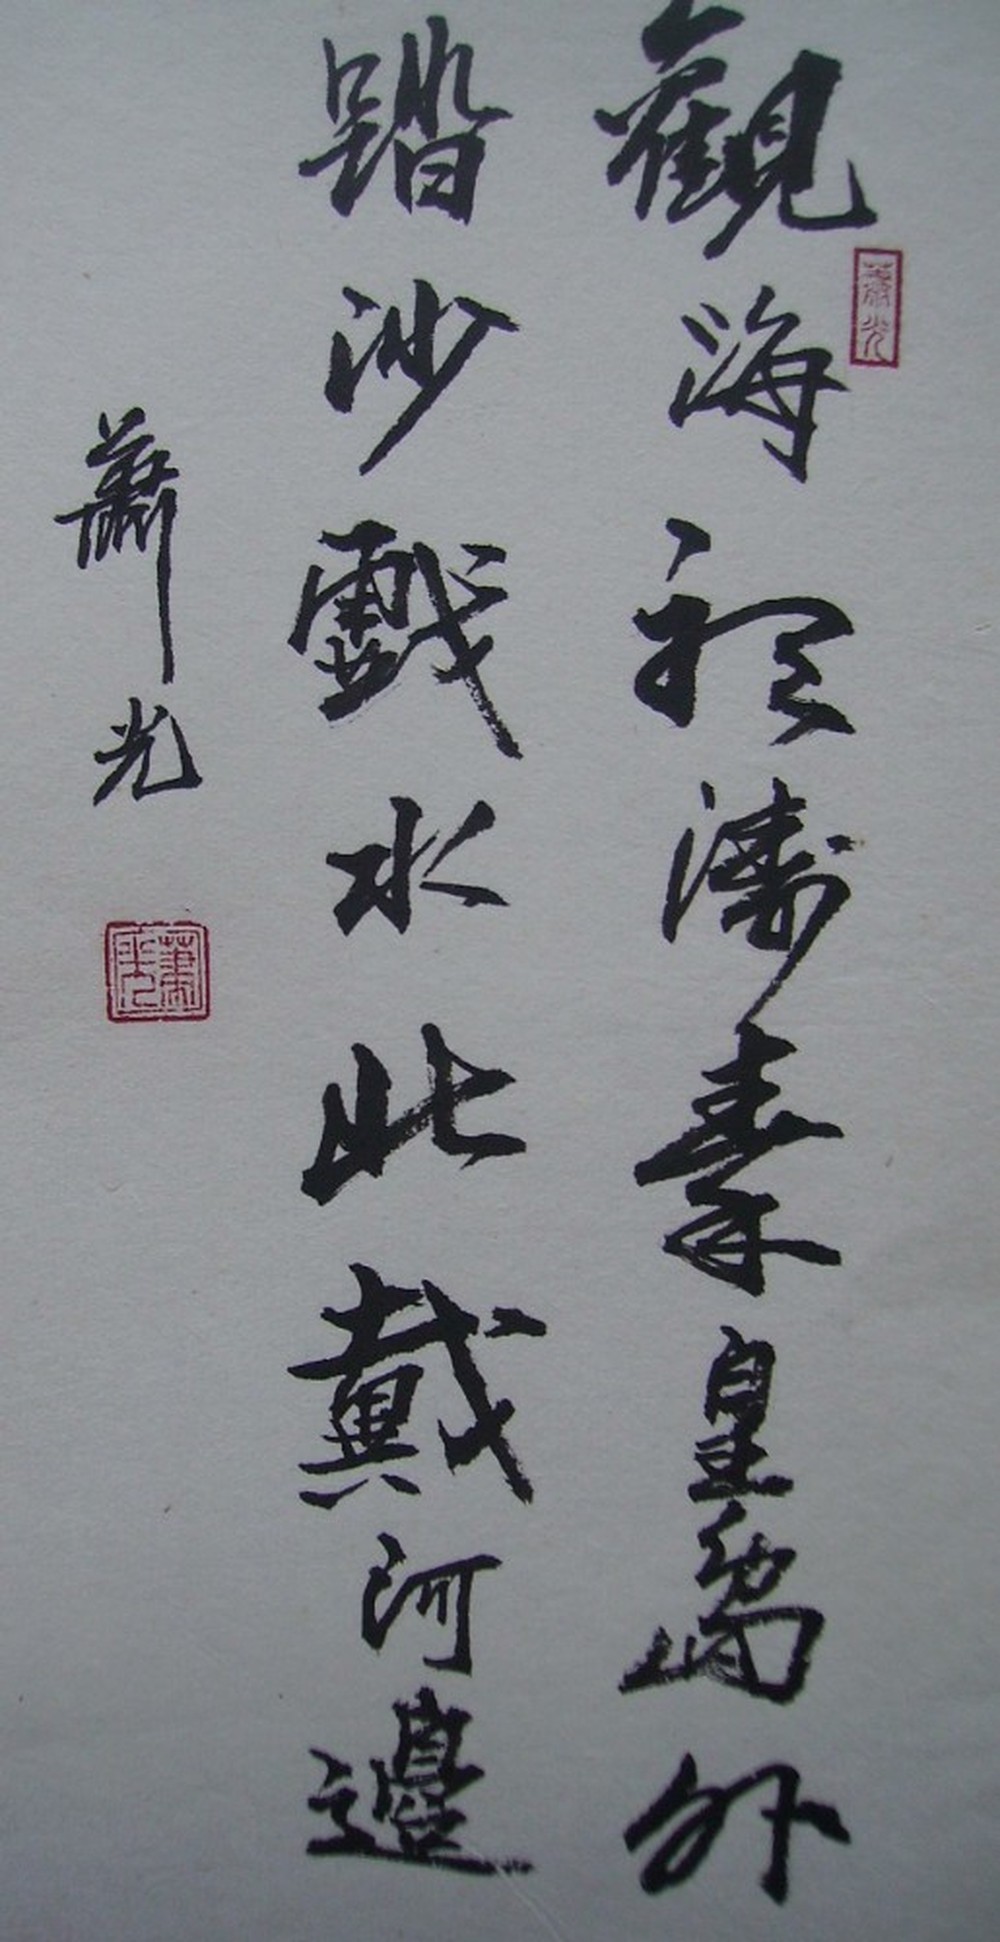 觀海聽濤秦皇島外
蕭光
踏沙戲水北戴河邊
蕭光
蕭光